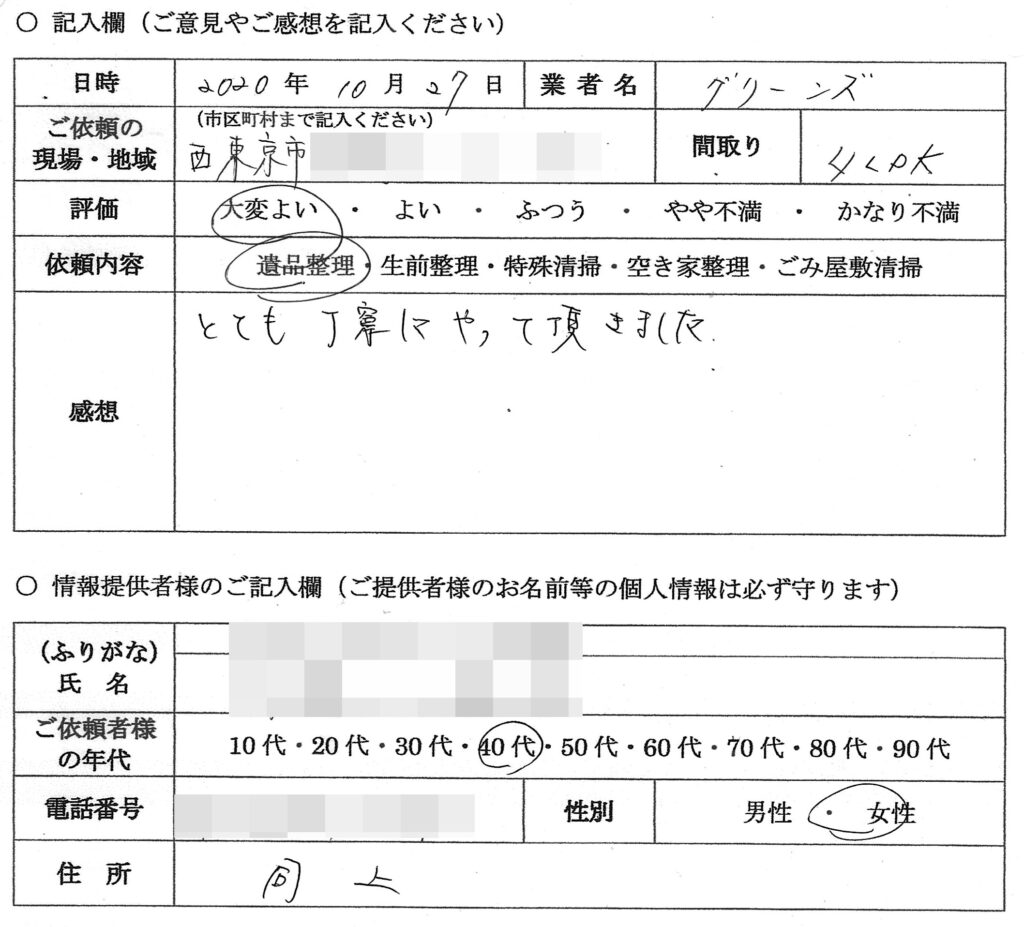 〇 記入欄（ご意見やご感想を記入ください）
日時 2020年 10月 27日 業者名 グリーンズ
ご依頼の現場・地域 （市区町村まで記入ください） 西東京市 間取り 4LDK
評価 大変よい ・ よい ・ ふつう ・ やや不満 ・ かなり不満
依頼内容 遺品整理・生前整理・特殊清掃・空き家整理・ごみ屋敷清掃
感想 とても丁寧にやって頂きました.
〇 情報提供者様のご記入欄（ご提供者様のお名前等の個人情報は必ず守ります）
（ふりがな）
氏 名
ご依頼者様の年代 10代・20代・30代・40代・50代・60代・70代・80代・90代
電話番号 性別 男性 ・ 女性
住 所 同上